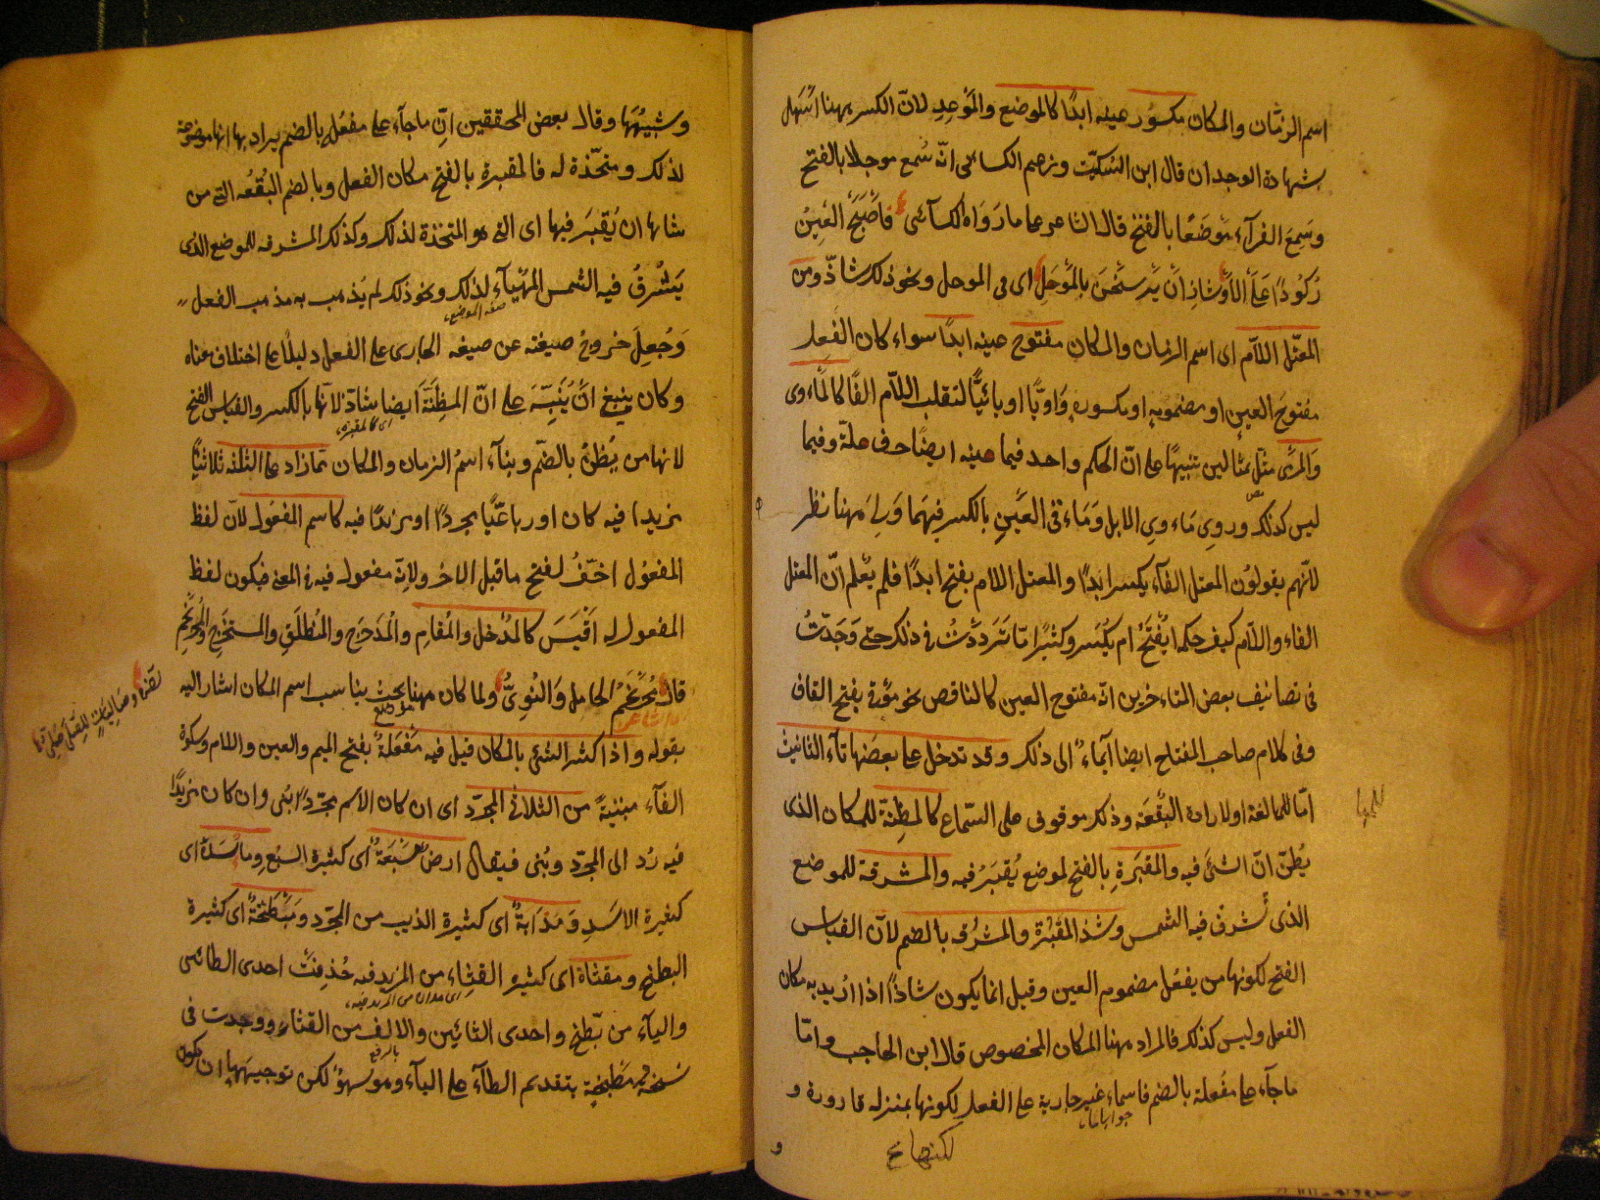 اسم الزمان والمكان مكسور عينه ابدًا كالموضع والموعد لانّ الكسر ههنا اسهل
بشهادة الوجدان قال ابن السكيت وزعم الكسائى انّه سُمع موجلا بالفتح
وسَمِعَ الفرآء مَوضَعًا بالفتح قال الشاعر على ما رَوَاه الكسآئى فاصْبَحَ العِيْنُ
رُكُودًا عَلَى الاَوشاذِ اَنْ يَرسَخْنَ بالمَوْحَلِ اى فى الموحل ونحو ذلك شاذّ ومن
المعتل اللاّم اى اسم الزمان والمكان مفتوح عينه ابدًا سواء كان الفعل
مفتوحَ العين او مضمومه او مكسوره وَاوِيًّا او يائيًّا لتقلب اللاّم الفًا كالمأوى
والمرمَى مثّل بمثالين تنبيهًا على انّ الحكم واحد فيما عينه ايضًا حرف علة وفيما
ليس كذلك وروى مَاءوِى الابل وَمَاءقِى العَيْنِ بالكسر فيهما وَلِىَ ههنا نظر
لانّهم يقولون المعتل الفآء يكسر ابدًا والمعتل اللام بفتح ابدًا فلم يُعْلم انّ المعتل
الفاء واللام كيف حكمه ايُفْتَحُ ام يُكْسَر وكثيرًا مّا تَرَدَّدْتُ فى ذلك حتى وَجَدْتُ
فى تصانيف بعض المتاءخرين انّه مفتوح العين كالناقص نحو مَوْقًى بفتح القاف
وفى كلام صاحب المفتاح ايضا ايمآءٌ الى ذلك وقد تدخل على بعضها تآء التانيث
امّا للمبالغة او لارادة البُقْعَة وذلك موقوف على السّماع كالمظِنّة للمكان الذى
يُظنّ انّ الشئَ فيه والمقبَرةِ بالفتح لموضع يُقبَرُ فيه والمشرقة للموضع
الذى تُشرق فيه الشمس وشذ المقبُرة والمشرُقه بالضم لانّ القياس
الفتح لكونها من يفعُل مضموم العين وقيل انما يكون شاذًّا اذا اُريد به مكان
الفعل وليس كذلك فالمراد ههنا المكان المخصوص قال ابن الحاجب وامّا
ماجآء على مفعلة بالضم فاسماء غير جارية على الفعل لكونها بمنزله قارورة و
جواب اما
لكنها
و
وشبِيْهَها وقال بعض المحققين انّ ماجآء على مفعُل بالضم يراد بها انها موضوعة
لذلك ومتخّذة له فالمقبرة بالفتح مكان الفعل وبالضم البُقْعُه التى من
شانها ان يُقبَرَ فيها اى التى هو المتخذة لذلك وكذلك المشرقه للموضع الذى
يَشْرُقُ فيه الشمس المهيَّآء لذلك ونحو ذلك لم يُذهب به مذهب الفعل
صفه الموضع
وَجُعِلَ خروجُ صيغته عن صيغه الجارى على الفعل دليلًا على اختلاف معناه
وكان ينبغى انْ يُنَبِّهَ على انّ المظِنَّةَ ايضا شاذّة لانّها بالكسر والقياس الفتح
اى كالمقبره
لانها من يُظنُّ بالضّم وبنآء اسمُ الزمان والمكان ممّا زاد على الثلثه ثلاثيًّا
مزيدا فيه كان او رباعيًّا مجردًا او مزيدًا فيه كاسم المفعول لانّ لفظ
المفعول اخَفُّ لفتح ما قبل الاخر ولانّه مفعول فيه فى المعنى فيكون لفظ
المفعول له اَقْيَسَ كالمُدْخل والمُقام والمُدَحْرَج والمُنْطلَقِ والمستخرَج والمُحْرَنْجَم
قال مُحْرَنْجَمُ الجامل وَالنُوِىُّ ولما كان ههنا بحث يناسب اسم المكان اشار اليه
بقوله واذا كثر الشئ بالمكان قيل فيه مَفْعَلةٌ بفتح الميم والعين واللام وسكون
الفآء مبنيةً من الثلاثى المجرّد اى ان كان الاسم مجرّدًا بُنى وان كان مزيدًا
فيه رُدّ الى المجرّد وبُنى فيقال ارضٌ مَسْبَعَةٌ اى كثيرة السبُع ومأسَدَة اى
كثيرة الاسَدِ وَمَذابَةٌ اى كثيرة الذيب من المجرّد ومَبْطَخَةٌ اى كثيرة
البطيخ ومقثاة اى كثيره القثاء من المزيد فيه حُذِفَتْ احدى الطائى
واليآء من بطّيخ واحدى الثائين والالف من القثاء ووجدت فى
نسخة مطبخة بتقديم الطآء على البآء وهو سهوٌ لكن توجيهها ان يكون